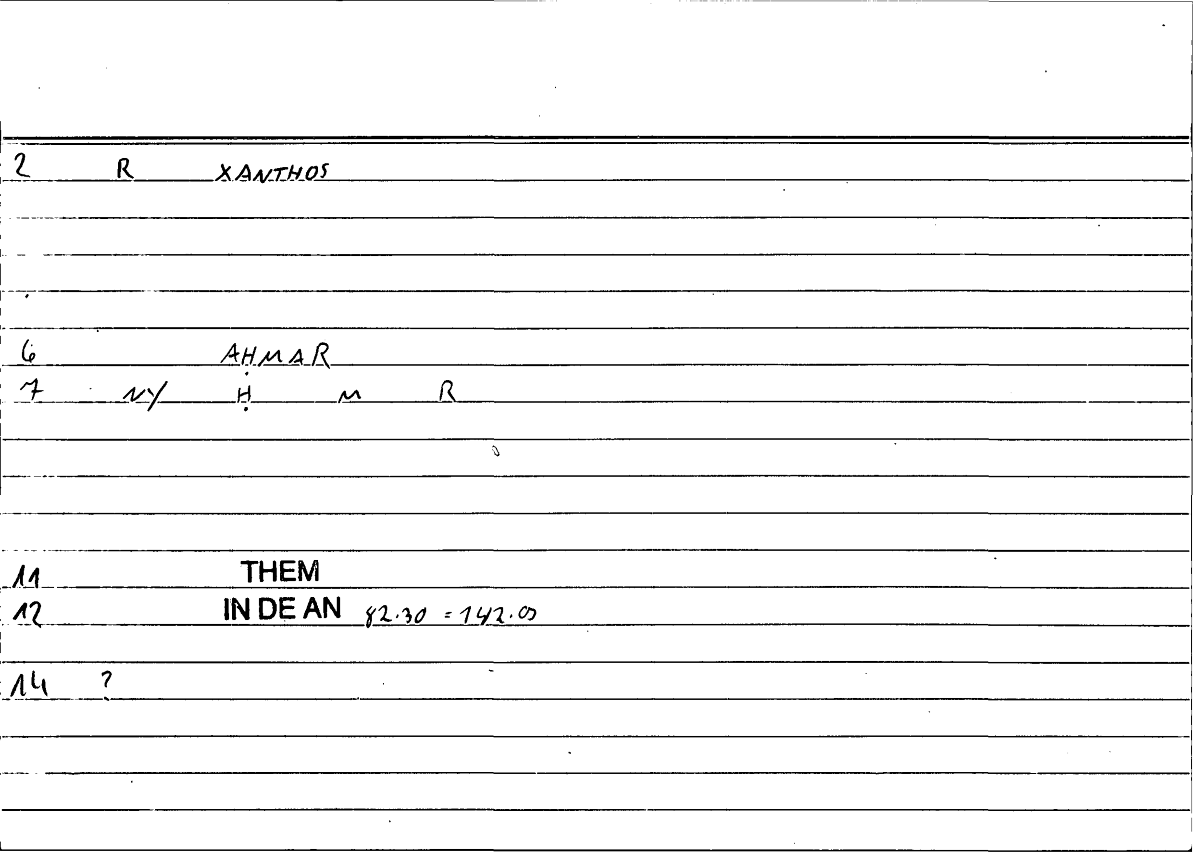 2 R XANTHOS
6 AḤMAR
7 NY Ḥ M R
11 THEM
12 IN DE AN 82.30 = 142.05
14 ?